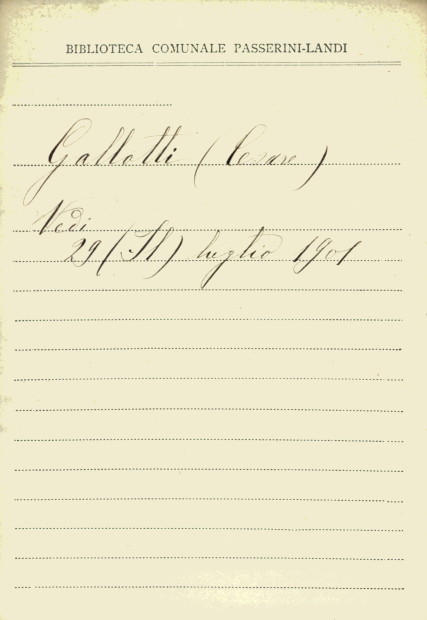 BIBLIOTECA COMUNALE PASSERINI-LANDI
Gallotti (Cesare)
Vedi
29 (Il) luglio 1901